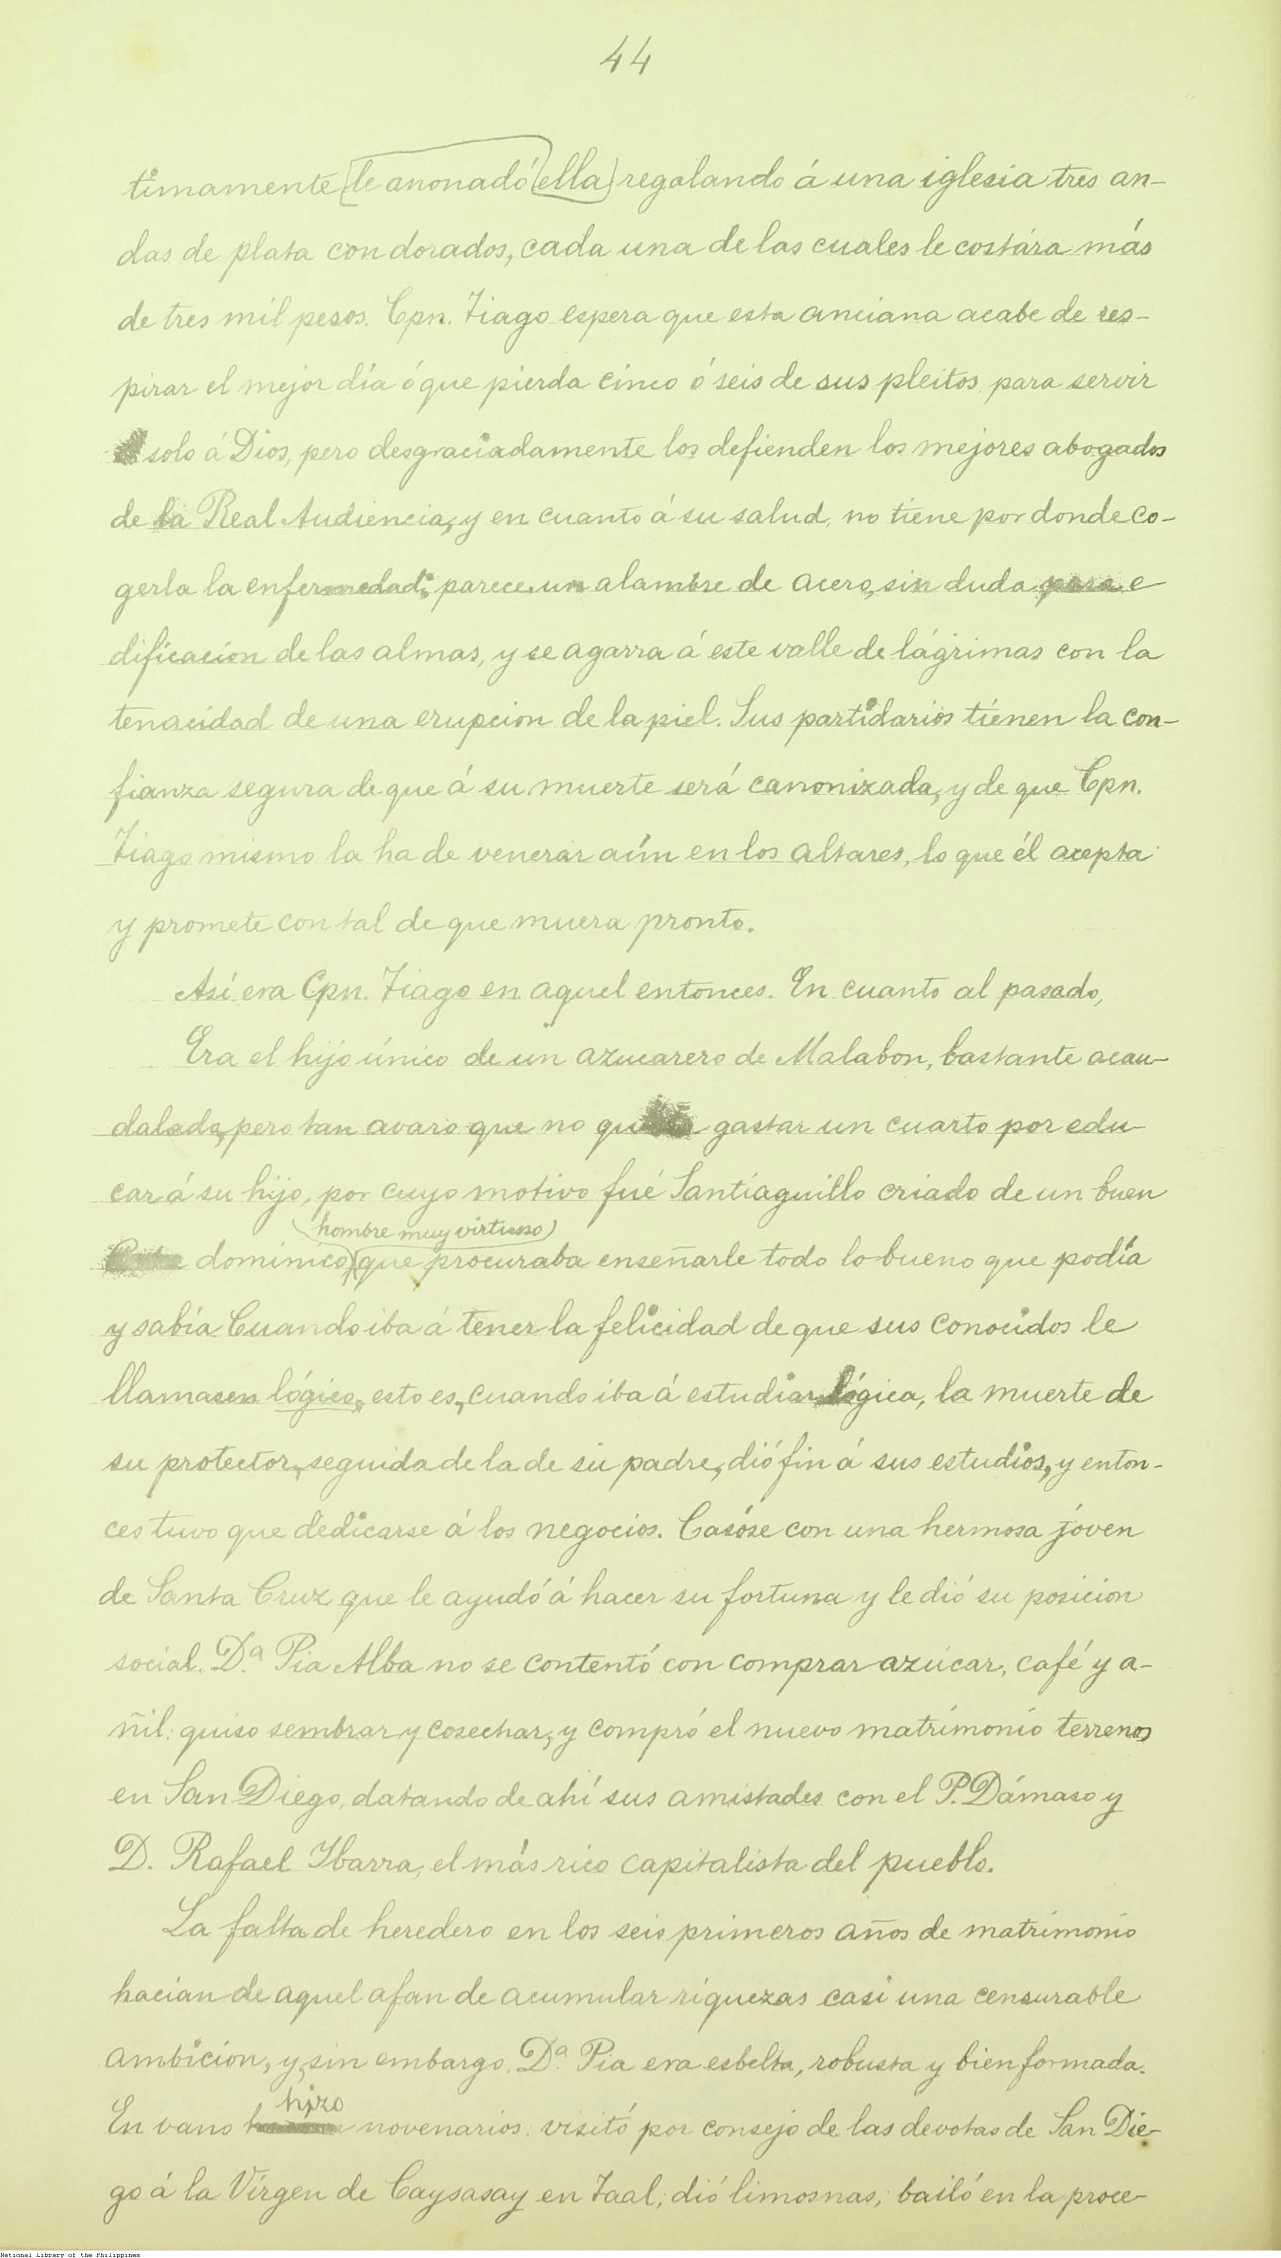 44
timamente le anonadó ella regalando á una iglesia tres an-
das de plata con dorados, cada una de las cuales le costára más
de tres mil pesos. Cpn. Tiago espera que esta anciana acabe de res-
pirar el mejor día ó que pierda cinco ó seis de sus pleitos para servir
solo á Dios, pero desgraciadamente los defienden los mejores abogados
de la Real Audiencia, y en cuanto á su salud, no tiene por donde co-
gerla la enfermedad; parece un alambre de acero, sin duda para e
dificación de las almas, y se agarra á este valle de lágrimas con la
tenacidad de una erupcion de la piel. Sus partidarios tienen la con-
fianza segura de que á su muerte será canonizada, y de que Cpn.
Tiago mismo la ha de venerar aún en los altares, lo que él acepta
y promete con tal de que muera pronto.
Así era Cpn. Tiago en aquel entonces. En cuanto al pasado,
Era el hijo único de un azucarero de Malabon, bastante acau-
dalado, pero tan avaro que no gastar un cuarto por edu-
car á su hijo, por cuyo motivo fué Santiaguillo criado de un buen
hombre muy virtuoso
dominico, que procuraba enseñarle todo lo bueno que podía
y sabía Cuando iba á tener la felicidad de que sus conocidos le
llamasen lógico, esto es, cuando iba á estudiar lógica, la muerte de
su protector, seguida de la de su padre, dió fin á sus estudios, y enton-
ces tuvo que dedicarse á los negocios. Casóse con una hermosa jóven
de Santa Cruz que le ayudó á hacer su fortuna y le dió su posicion
social. D.ª Pia Alba no se contentó con comprar azúcar, café y a-
ñil: quiso sembrar y cosechar, y compró el nuevo matrimonio terrenos
en San Diego, datando de ahí sus amistades con el P. Dámaso y
D. Rafael Ibarra, el más rico capitalista del pueblo.
La falta de heredero en los seis primeros años de matrimonio
hacian de aquel afan de acumular riquezas casi una censurable
ambicion, y, sin embargo, D.ª Pia era esbelta, robusta y bien formada.
hizo
En vano novenarios. visitó por consejo de las devotas de San Die-
go á la Vírgen de Caysasay en Taal; dió limosnas, bailó en la proce-
National Library of the Philippines